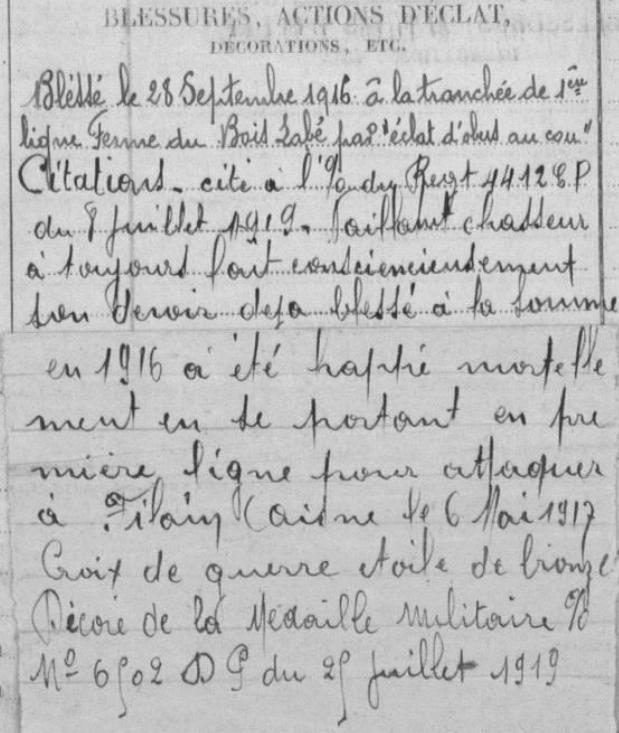 BLESSURES, ACTIONS D'ÉCLAT,
DÉCORATIONS, ETC.
Bléssé le 28 Septembre 1916 à la tranchée de 1ère
ligne Ferme du Bois Labé par "éclat d'obus au cou"
Citations. cité à l'% du Regt
du 8 juillet 1919. Vaillant chasseur
à toujours fait consciencieusement
son devoir deja blessé à la somme
en 1916 a été frappé mortelle
ment en se portant en pre
mière ligne pour attaquer
à Filain (aisne le 6 Mai 1917
Croix de guerre etoile de bronze
Décoré de la Médaille militaire %
No du juillet 1919